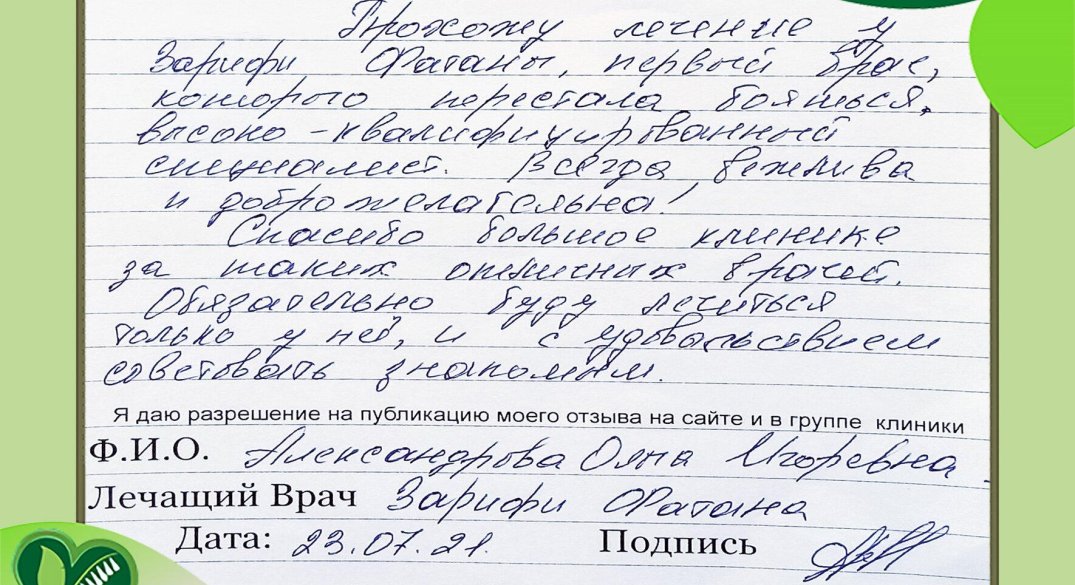 Прохожу лечение у
Зарифи Фатаны, первый врач,
которого перестала бояться,
высоко-квалифицированный
специалист. Всегда вежлива
и доброжелательна!
Спасибо большое клинике
за таких отличных врачей.
Обязательно буду лечиться
только у неё, и с удовольствием
советовать знакомым.
Я даю разрешение на публикацию моего отзыва на сайте и в группе клиники
Ф.И.О. Александрова Игоревна
Лечащий Врач Зарифи Фатана
Дата: 23.07.21. Подпись